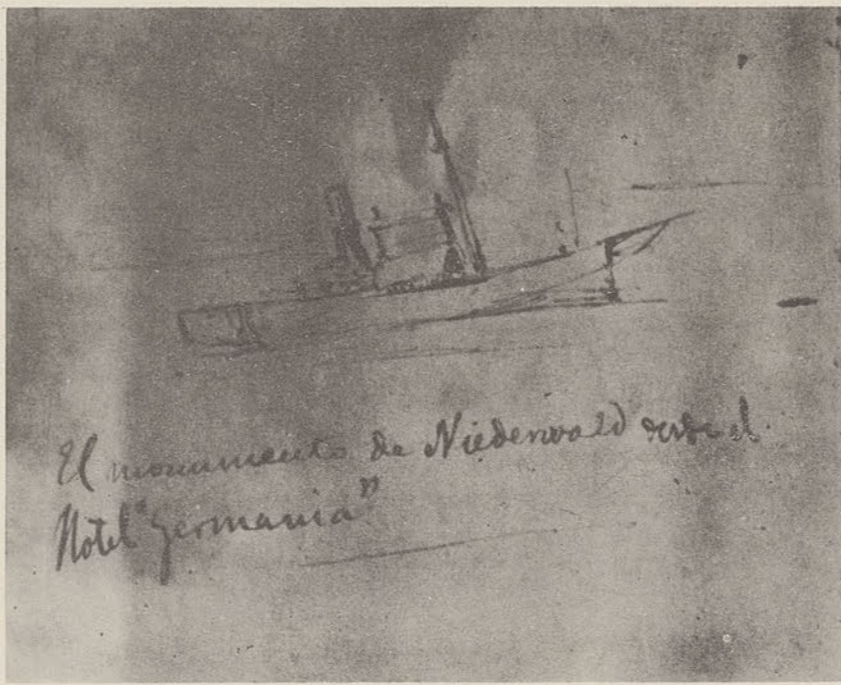 El monumento de Niederwald desde el
Hotel "Germania"